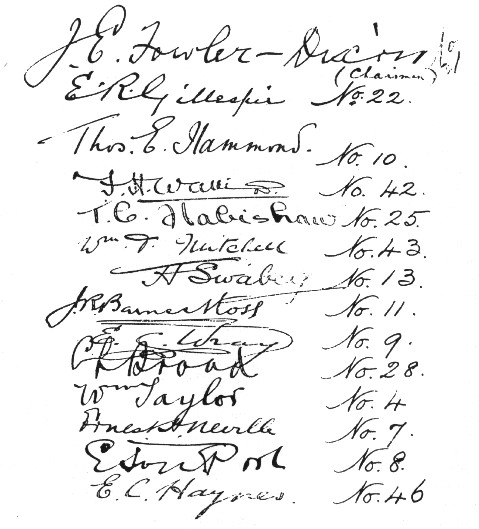 J. E. Fowler-Dixon
(Chairman)
E. R. Gillespie No. 22.
Thos. E. Hammond. No. 10.
F. H. Wallis No. 42.
T. C. Habishaw No. 25
Wm. F. Mitchell No. 43.
A Swabey No. 13.
J. R. Barnes Moss No. 11.
E. C. Wray No. 9.
Broad No. 28.
Wm Taylor No. 4
Ernest H. Neville No. 7.
No. 8.
E. C. Haynes. No. 46